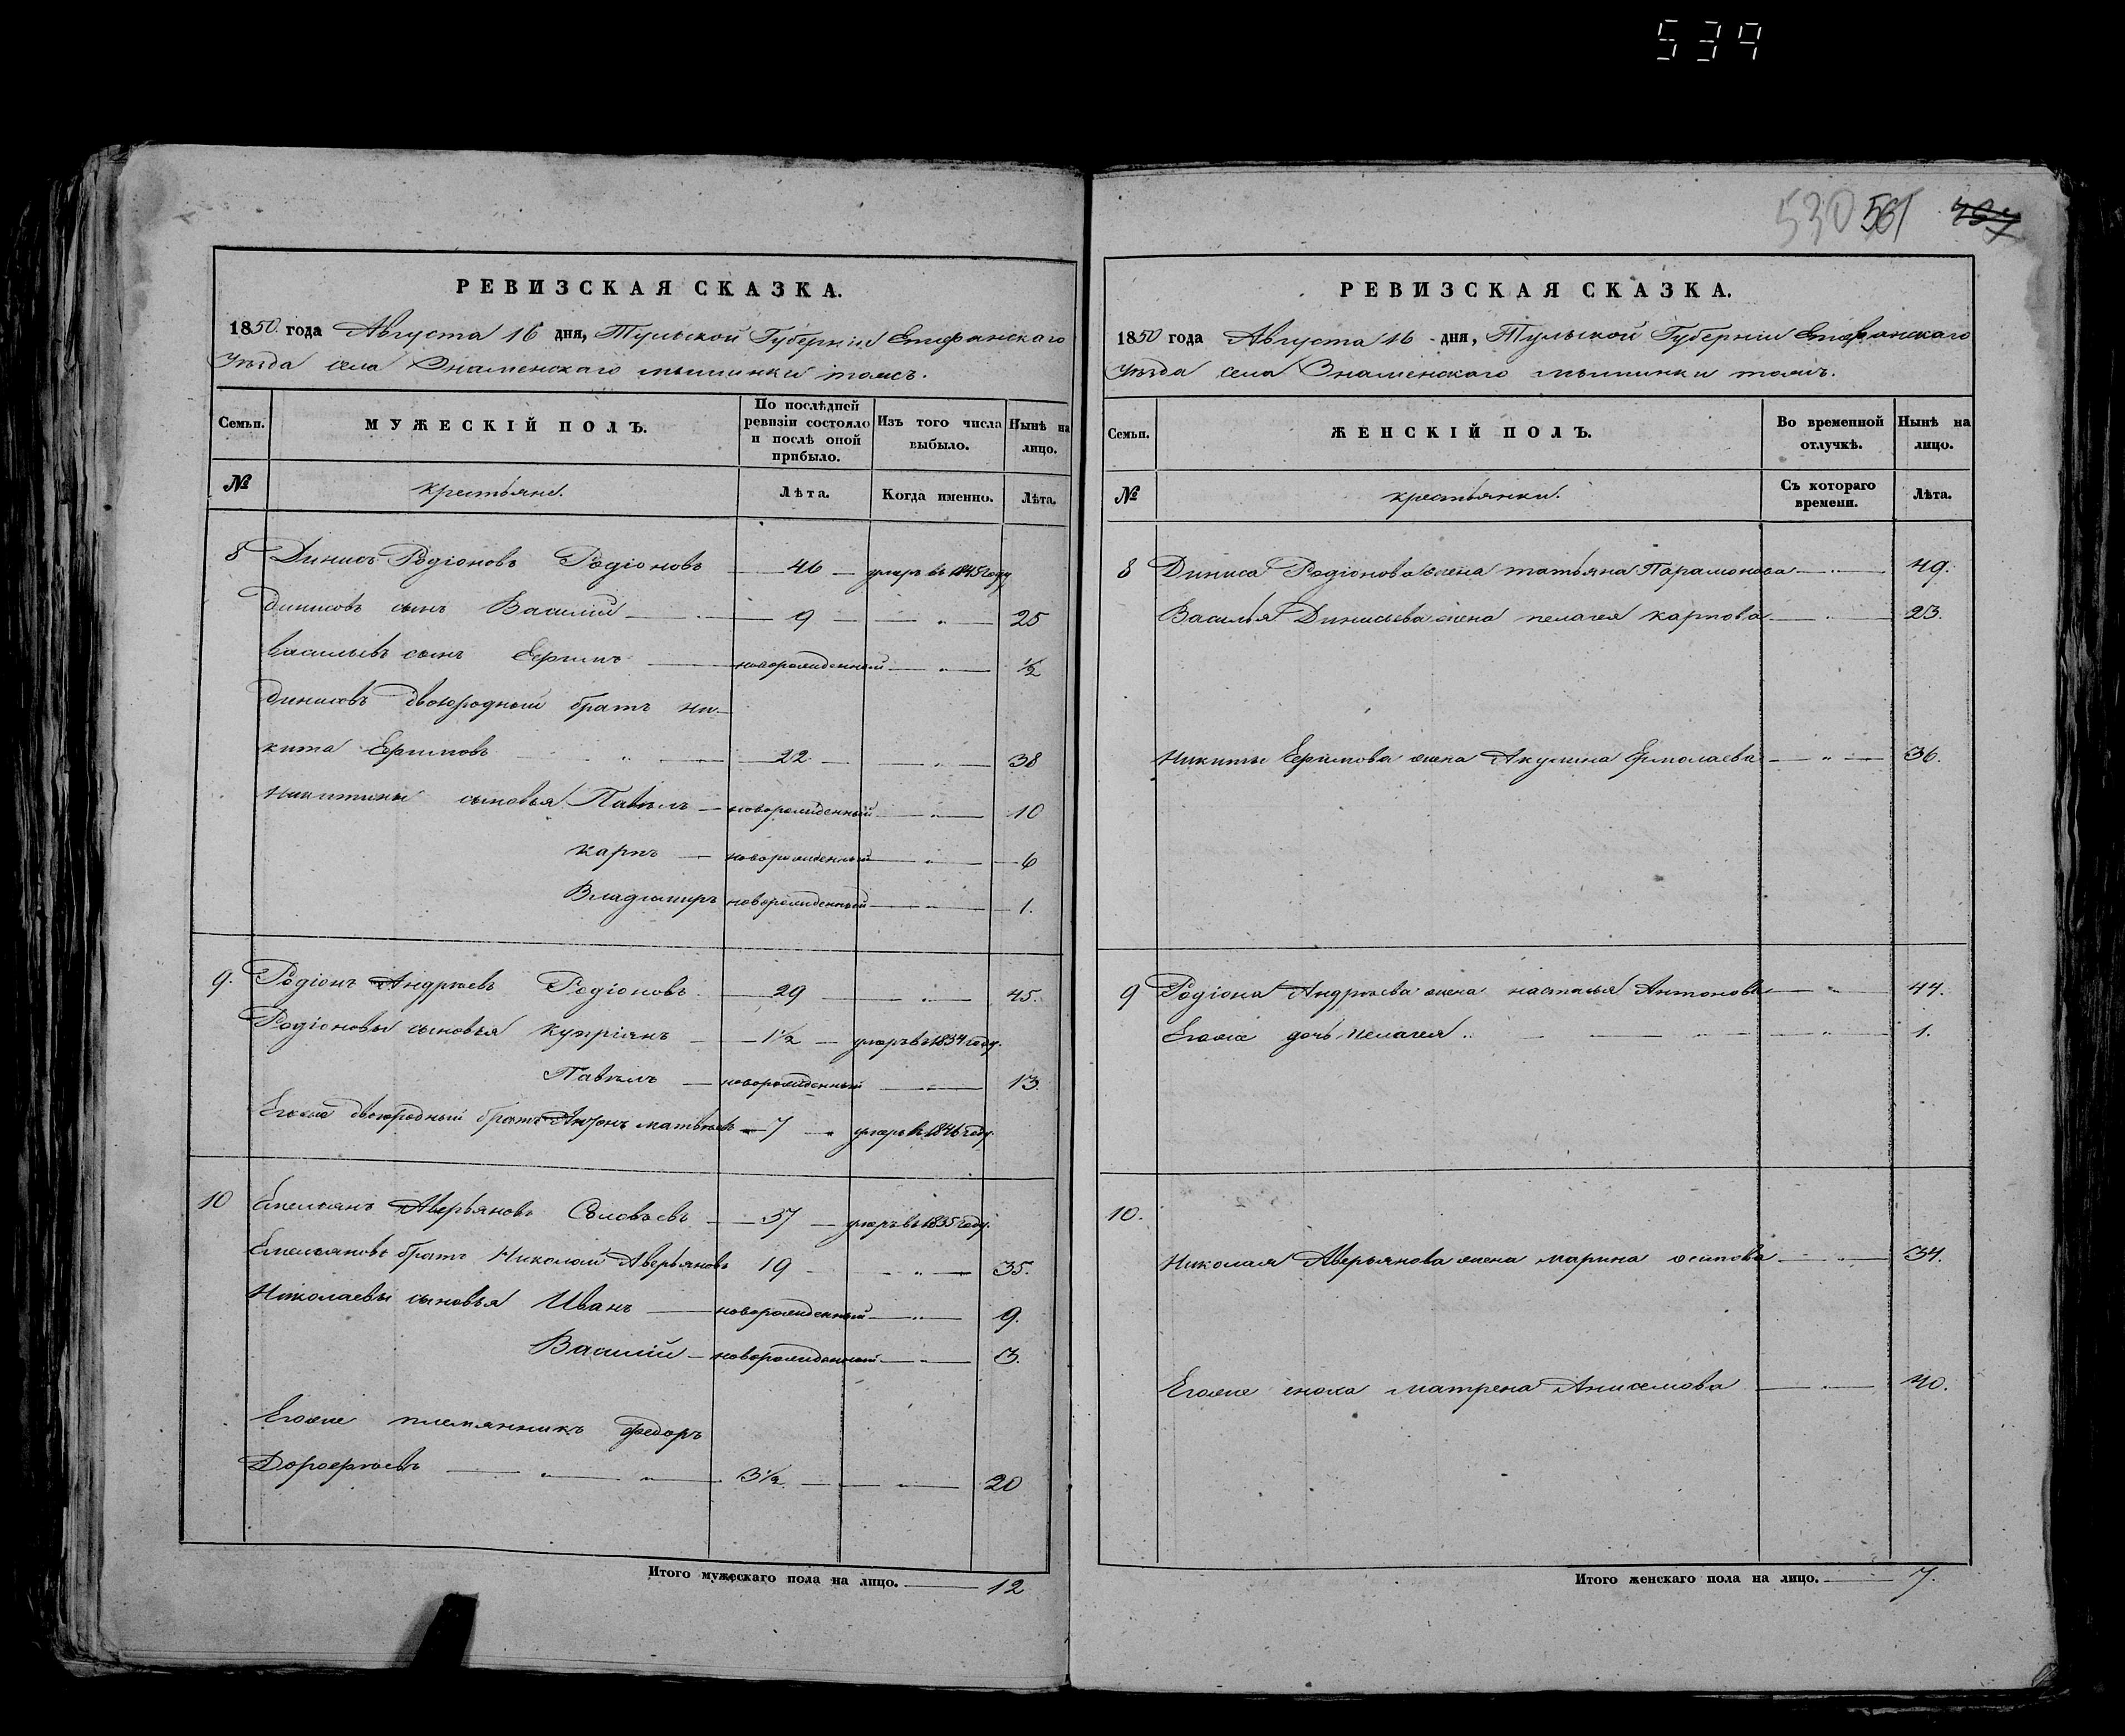 539
530 561 487
РЕВИЗСКАЯ СКАЗКА.
1850 года Августа 16 дня, Тульской Губерніи Епифанскаго
Уѣзда села Знаменскаго мышинки тожъ.
Семьи.
МУЖЕСКІЙ ПОЛЪ.
По послѣдней ревизіи состояло и послѣ оной прибыло.
Изъ того числа выбыло.
Нынѣ на лицо.
№ крестьяне. Лѣта. Когда именно. Лѣта.
8 Динисъ Родіоновъ Родіоновъ — 46 — умеръ въ 1845 году
Динисовъ сынъ Василий — 9 — " — 25
Васильевъ сынъ Ефимъ — новорожденный — " — ½
Динисовъ двоюродный братъ ни-
кита Ефимовъ — " — 22 — " — 38
Никитины сыновья Павелъ — новорожденный — " — 10
Карпъ — новорожденный — " — 6
Владимиръ новорожденный — " — 1.
9. Родіонъ Андреевъ Родіоновъ — 29 — " — 45.
Родіоновы сыновья Купріянъ — 1½ — умеръ въ 1834 году.
Павелъ — новорожденный — " — 13.
Егоже двоюродный братъ Антонъ матвѣевъ — 7 — умеръ въ 1846 году.
10 Емельянъ Аверьяновъ Соловьевъ — 37 — умеръ въ 1835 году.
Емельяновъ братъ Николай Аверьяновъ 19 — " — 35.
Николаевы сыновья Иванъ — новорожденный — " — 9.
Василий — новорожденный — " — 3.
Егоже племянникъ федоръ
Дорофѣевъ — " — " — 3½ — " — 20
Итого мужескаго пола на лицо. — 12
РЕВИЗСКАЯ СКАЗКА.
1850 года Августа 16 дня, Тульской Губерніи Епифанскаго
Уѣзда села Знаменскаго мышинки тожъ.
Семьи.
ЖЕНСКІЙ ПОЛЪ.
Во временной отлучкѣ.
Нынѣ на лицо.
№ крестьянки. Съ котораго времени. Лѣта.
8 Диниса Родіонова жена татьяна Парамонова — " — 49.
Василья Динисьева жена пелагея карпова — " — 23.
Никиты Ефимова жена Акулина Ермолаева — " — 36.
9 Родіона Андреева жена насталья Антонова — " — 44.
Егоже дочь Пелагея — " — 1.
10.
Николая Аверьянова жена марина осипова — " — 34.
Егоже сноха матрена Анисимова — " — 40.
Итого женскаго пола на лицо. — 7.